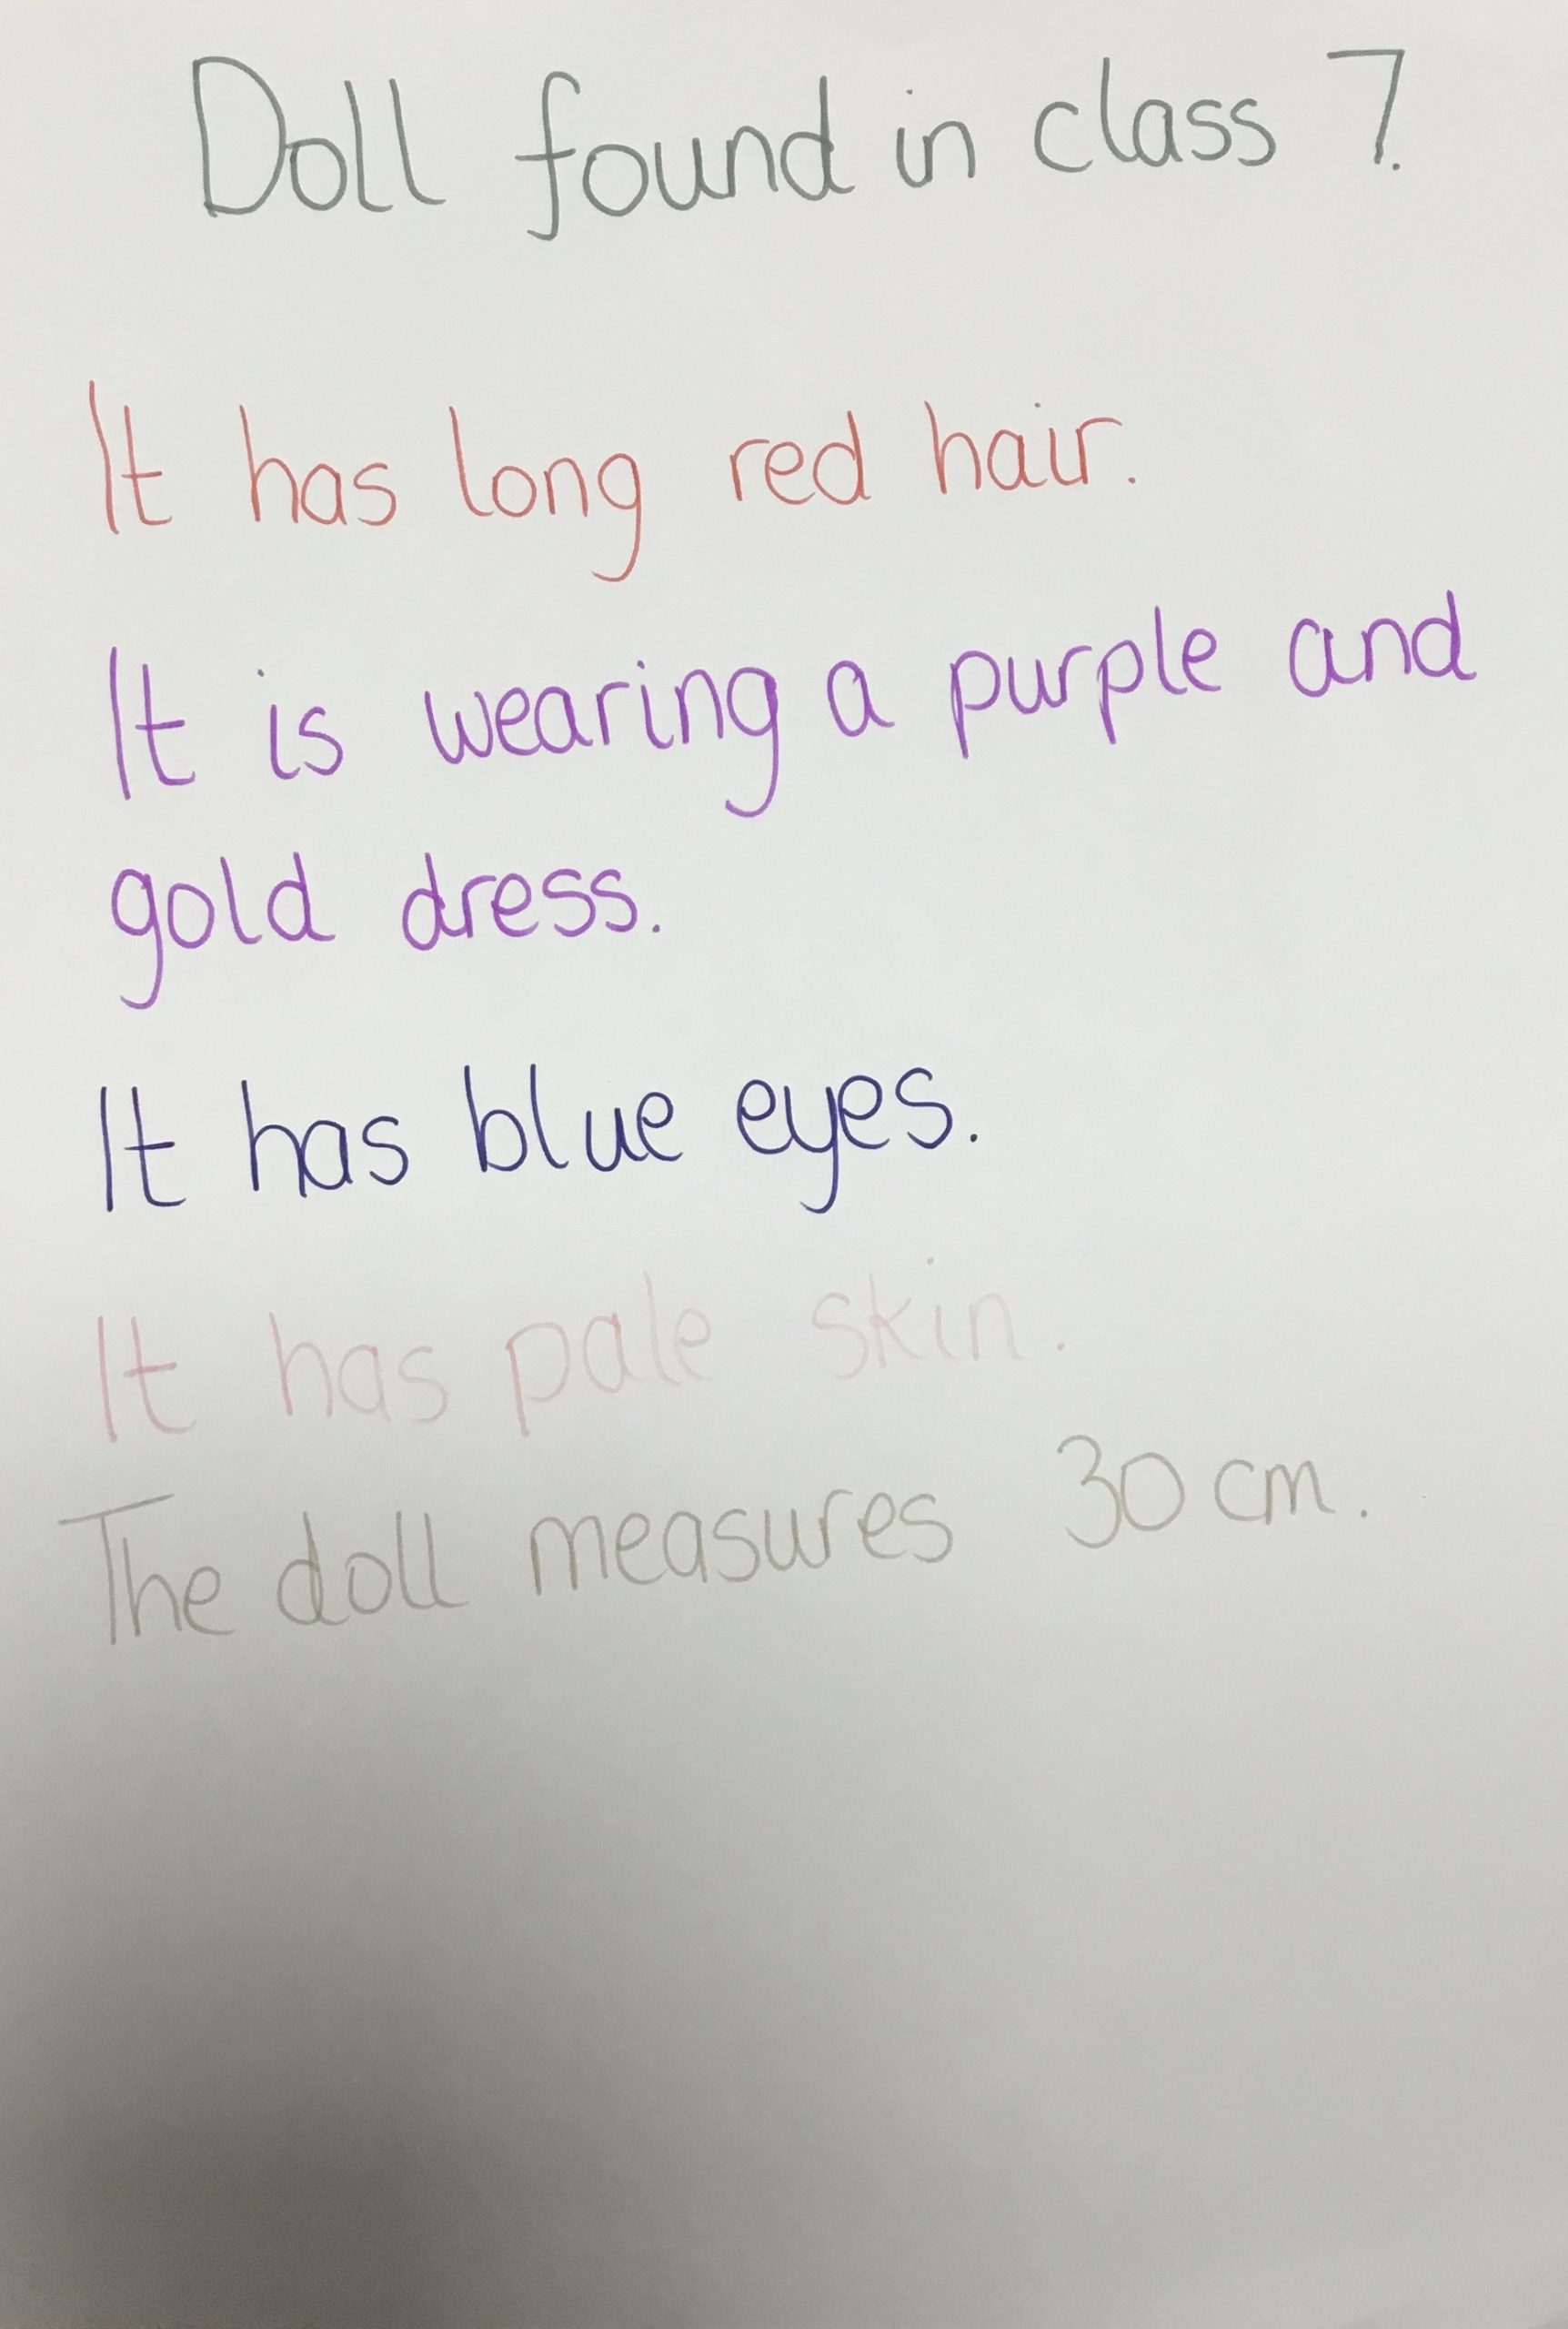 Doll found in class 7.
It has long red hair.
It is wearing a purple and
gold dress.
It has blue eyes.
It has pale skin.
The doll measures 30 cm.